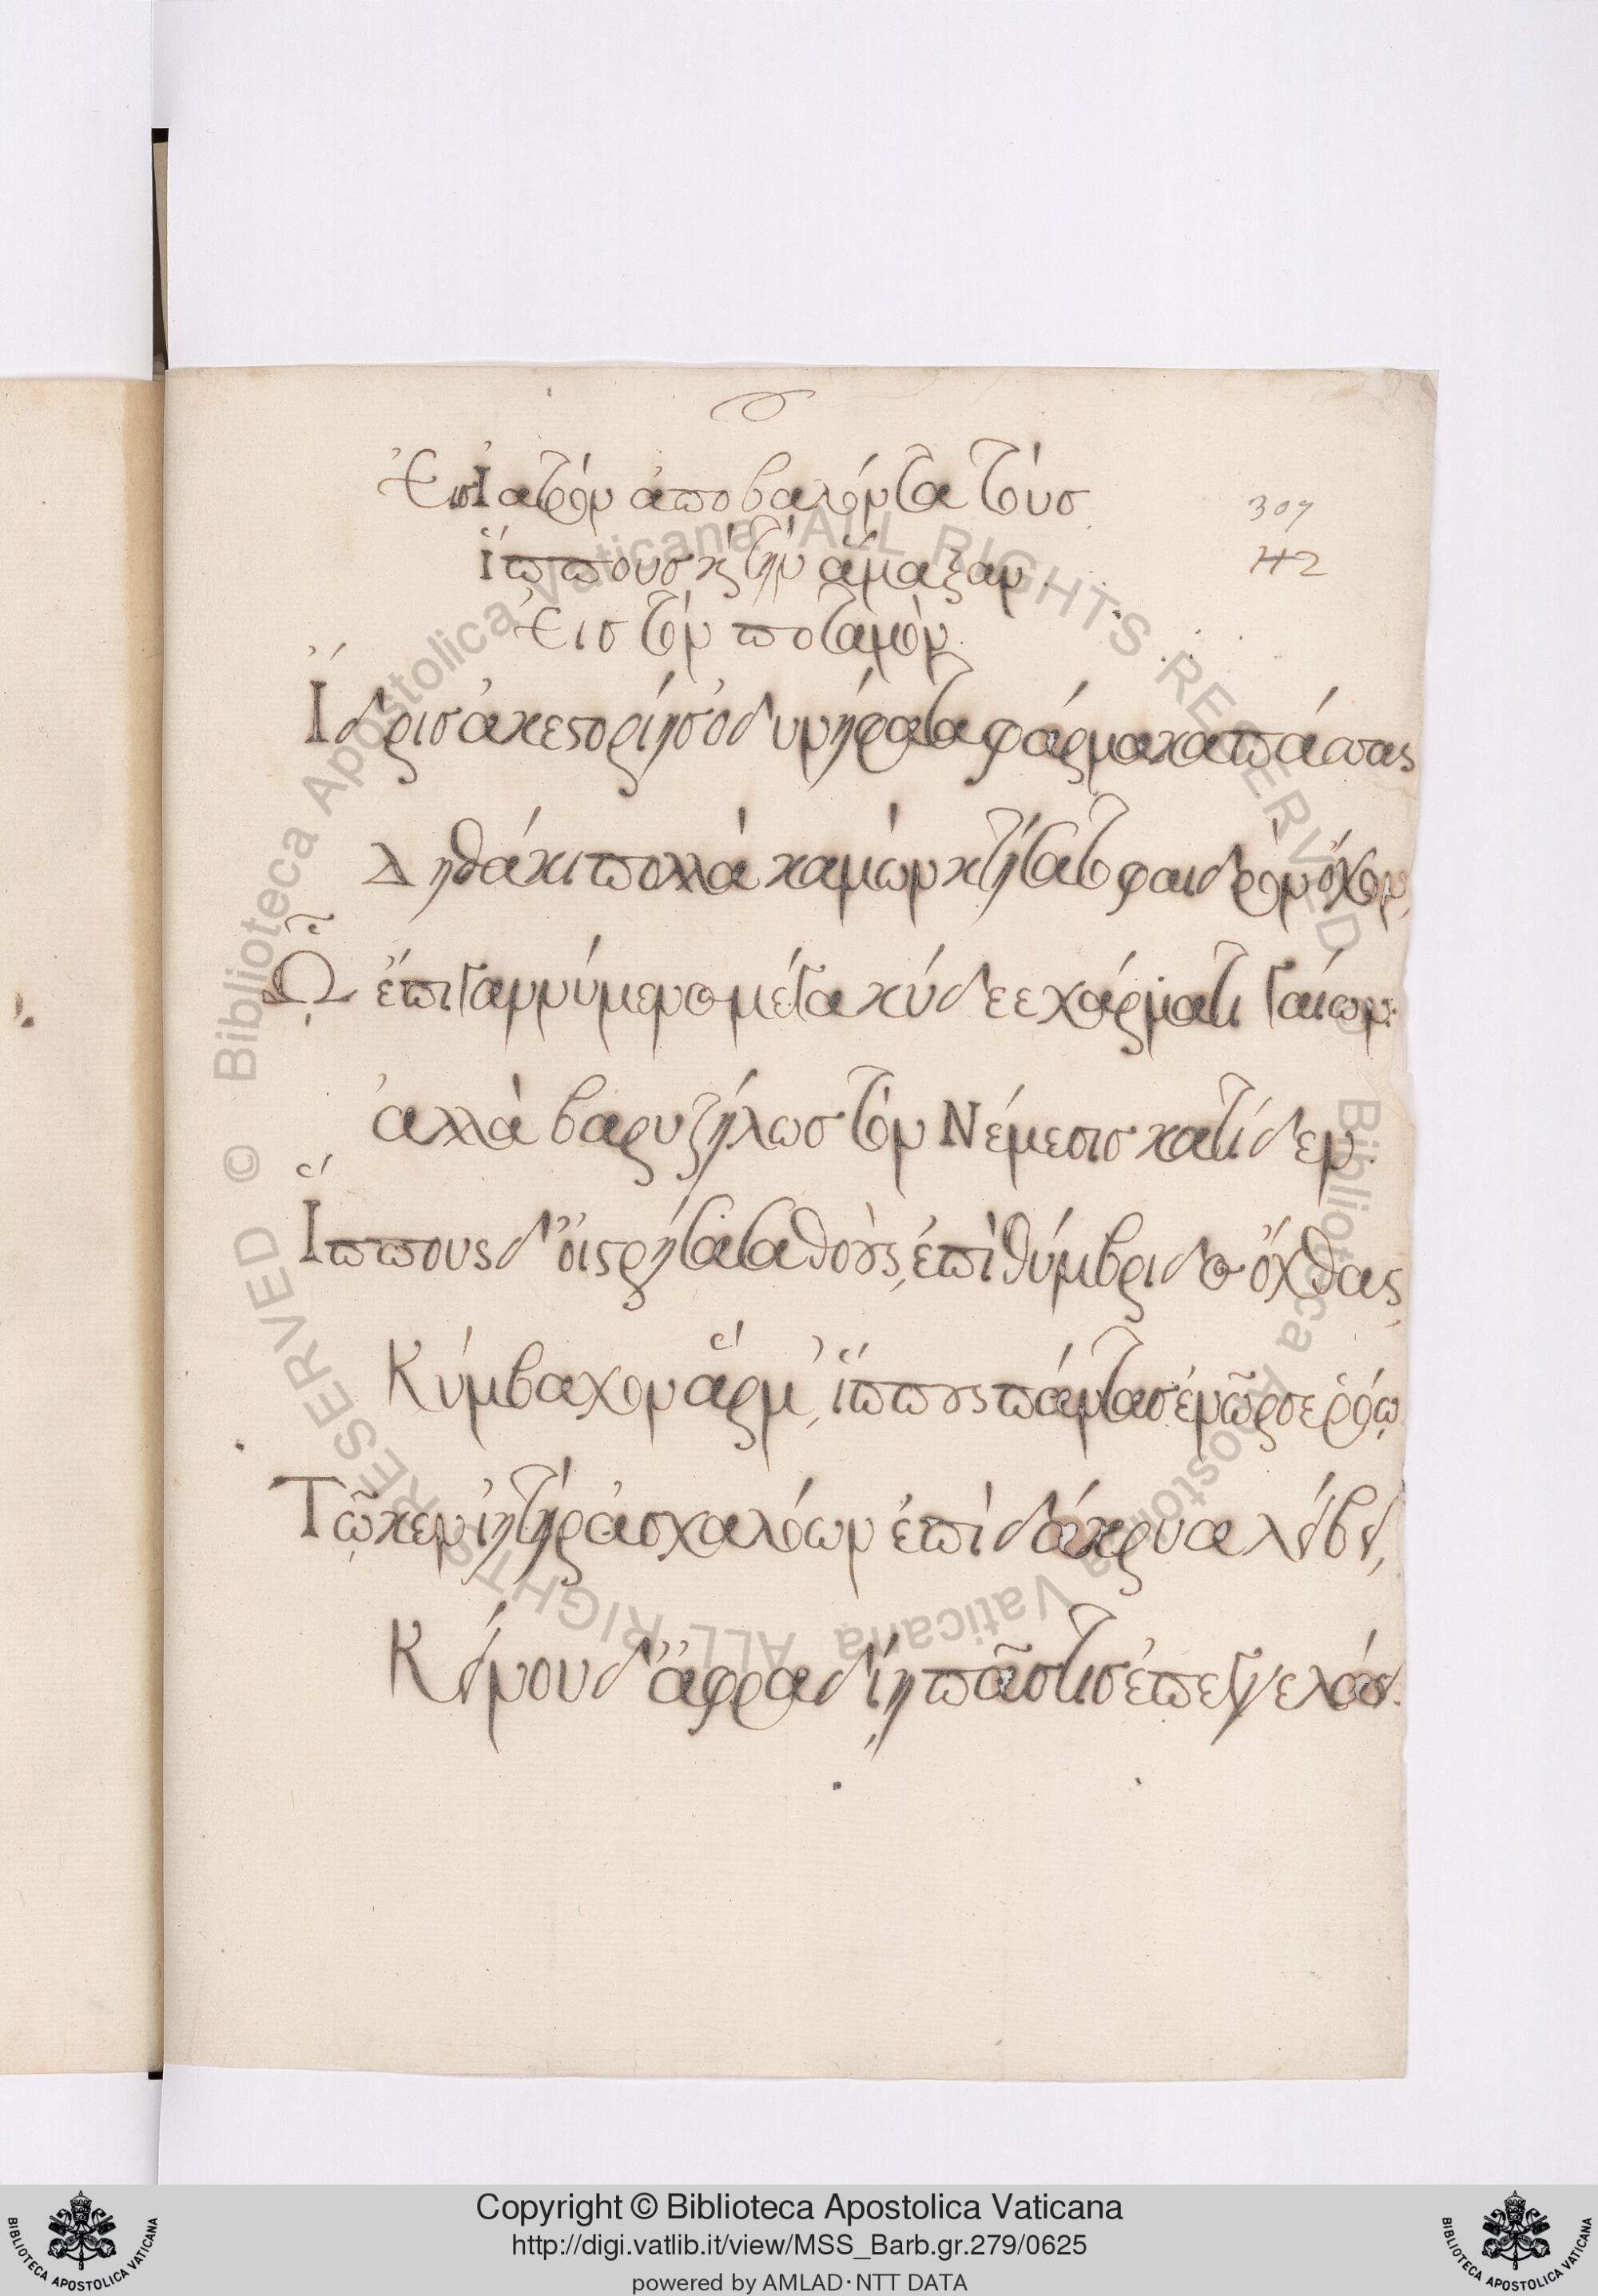 Ἐις Ἰατρὸν ἀποβαλόντα τοὺσ
ἵππουσ κὶ τὴν ἅμαξαν.
Ἐισ τὸν ποταμὸν.
Ἴδρισ ἀκεστορίησ ὀδυνήφατα φάρμακα πάσσας
Δηθάκι πολλὰ καμὼν κτήσατο φαιδρὸν ὄχον,
ᾯ ἔπι γαννύμενος μέγα κύδεε χάρματι γαίων·
ἀλλὰ βαρυζήλωσ τὸν Νέμεσισ κατίδεν.
Ἵππους δ' οἰστρήσασα θοὺς, ἐπὶ θύμβριδος ὄχθας,
Κύμβαχον ἅρμ', ἵππους πάντασ ἐνῶρσε ῥόῳ.
Τῷ κεν ἰητὴρ ἀσχαλόων ἐπὶ δάκρυα λείβει,
Κείνου δ' ἀφραδίῃ πᾶς τισ ἐπεγγελάει.
307
112
Copyright © Biblioteca Apostolica Vaticana
http://digi.vatlib.it/view/MSS_Barb.gr.279/0625
powered by AMLAD·NTT DATA
BIBLIOTECA APOSTOLICA VATICANA
BIBLIOTECA APOSTOLICA VATICANA
© Biblioteca Apostolica Vaticana ALL RIGHTS RESERVED
© Biblioteca Apostolica Vaticana ALL RIGHTS RESERVED